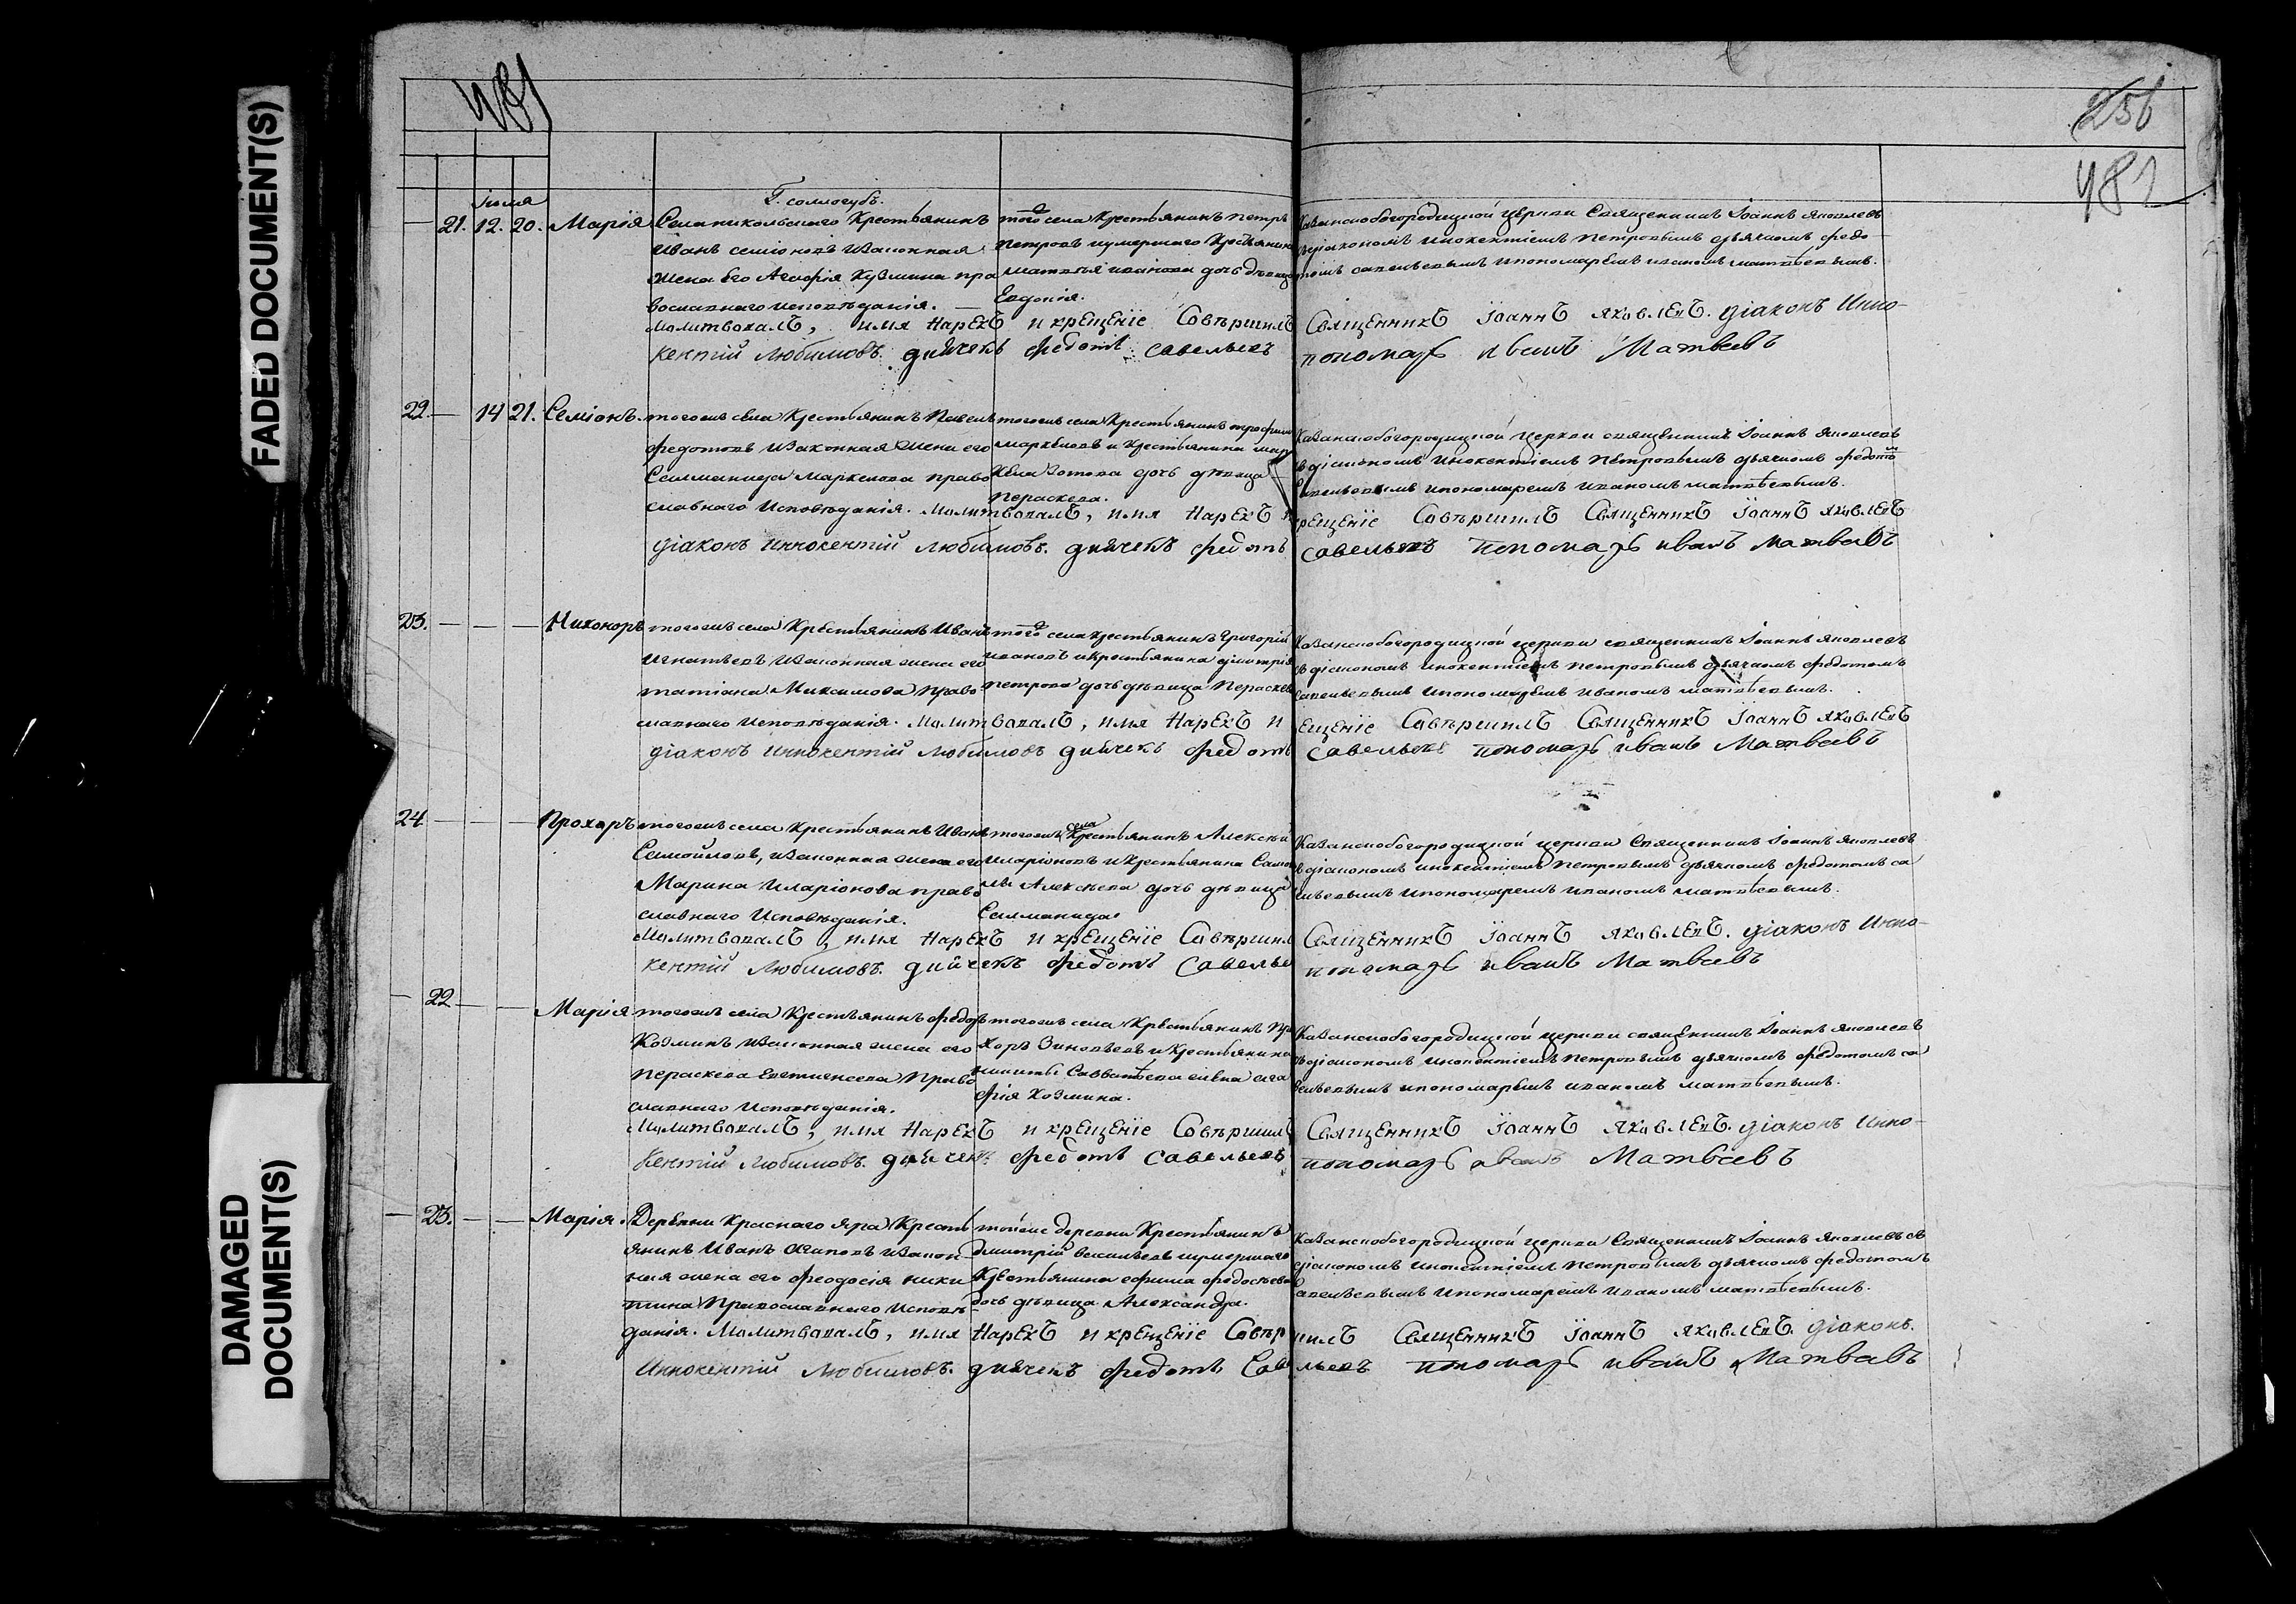 FADED DOCUMENT(S)
DAMAGED
DOCUMENT(S)
481
256
482
Іюля
Г. Соллогубъ.
21. 12. 20. Марія
Села никольскаго Крестьянинъ
Иванъ семіоновъ изаконная
жена его Агафія Кузмина пра
вославнаго исповѣданія.
того села крестьянинъ петръ
петровъ иумершаго Крестьянина
матвѣя иванова дочь дѣвица
Евдокія.
Казанскобогородицкой церкви Священникъ Іоаннъ Яковлевъ
съдіакономъ инокентіемъ петровымъ дьячкомъ федо
томъ савельевымъ ипономарёмъ иваномъ матвѣевымъ.
Молитвовалъ, имя нарекъ и крещеніе Совѣршилъ Священникъ Іоаннъ Яковлевъ. діаконъ Инно-
кентій Любимовъ. дьячекъ федотъ Савельевъ пономарь иванъ Матвеевъ
22. 14 21. Семіонъ.
тогожъ села Крестьянинъ Павелъ
федотовъ изаконная жена его
Саломанида Маркелова право
славнаго Исповѣданія.
тогожъ села Крестьянинъ трофимъ
маркеловъ и Крестьянина мар
кела Зотова дочь дѣвица
Пераскева.
Казанскобогородицкой церкви священникъ Іоаннъ Яковлевъ
съдіакономъ Инокентіемъ Петровымъ дьячкомъ федотомъ
Савельевымъ ипономаремъ иваномъ матвѣевымъ.
Молитвовалъ, имя нарекъ и крещеніе Совѣршилъ Священникъ Іоаннъ Яковлевъ
діаконъ Иннокентій Любимовъ. дьячекъ федотъ Савельевъ пономарь иванъ Матвеевъ
23. Никоноръ
тогожъ села Крестьянинъ Иванъ
Игнатьевъ изаконная жена его
татіана Максимова право
славнаго Исповѣданія.
того села крестьянинъ Григорій
ивановъ икрестьянина димитрія
петрова дочь дѣвица Пераскева
Казанскобогородицкой церкви священникъ Іоаннъ Яковлевъ
съдіакономъ инокентіемъ петровымъ дьячкомъ федотомъ
савельевымъ ипономарёмъ Иваномъ матвѣевымъ.
Молитвовалъ, имя нарекъ и крещеніе Совѣршилъ Священникъ Іоаннъ Яковлевъ
діаконъ Иннокентій Любимовъ дьячекъ федотъ Савельевъ пономарь иванъ Матвеевъ
24 Прохоръ
тогожъ села Крестьянинъ Иванъ
Самойловъ, изаконная жена его
Марина Иларіонова право
славнаго Исповѣданія.
тогожъ села Крестьянинъ Алексѣй
иларіоновъ икрестьянина Самой
лы Алексѣева дочь дѣвица
Саламанида
Казанскобогородицкой церкви Священникъ Іоаннъ Яковлевъ
съдіакономъ инокентіемъ Петровымъ дьячкомъ федотомъ са
вельевымъ ипономаремъ иваномъ матвѣевымъ.
Молитвовалъ, имя нарекъ и крещеніе Совѣршилъ Священникъ Іоаннъ Яковлевъ. діаконъ Инно-
кентій Любимовъ. дьячекъ федотъ Савельевъ пономарь иванъ Матвеевъ
22 Марія
тогожъ села Крестьянинъ федоръ
Козминъ изаконная жена его
пераскева Право
славнаго Исповѣданія.
тогожъ села Крестьянинъ Про
хоръ Зиновьевъ и Крестьянина
никиты Савватѣева жена ага
фія Козмина.
Казанскобогородицкой церкви священникъ Іоаннъ Яковлевъ
съдіакономъ инокентіемъ петровымъ дьячкомъ федотомъ са
вельевымъ ипономарёмъ иваномъ матвѣевымъ.
Молитвовалъ, имя нарекъ и крещеніе Совѣршилъ Священникъ Іоаннъ Яковлевъ. діаконъ Инно-
кентій Любимовъ. дьячекъ федотъ Савельевъ пономарь иванъ Матвеевъ
23. Марія.
Деревни Краснаго Яра Кресть
янинъ Иванъ изакон
ная жена его феодосія ники
тина Православнаго Исповѣ
данія.
тойже деревни Крестьянинъ
димитрій васильевъ иумершаго
Крестьянина ефима федосѣева
дочь дѣвица Александра.
Казанскобогородицкой церкви Священникъ Іоаннъ Яковлевъ съ
діакономъ инокентіемъ петровымъ дьячкомъ федотомъ
Савельевымъ ипономарёмъ иваномъ матвѣевымъ.
Молитвовалъ, имя нарекъ и крещеніе Совѣршилъ Священникъ Іоаннъ Яковлевъ. діаконъ.
Иннокентій Любимовъ. дьячекъ федотъ Савельевъ пономарь иванъ Матвеевъ